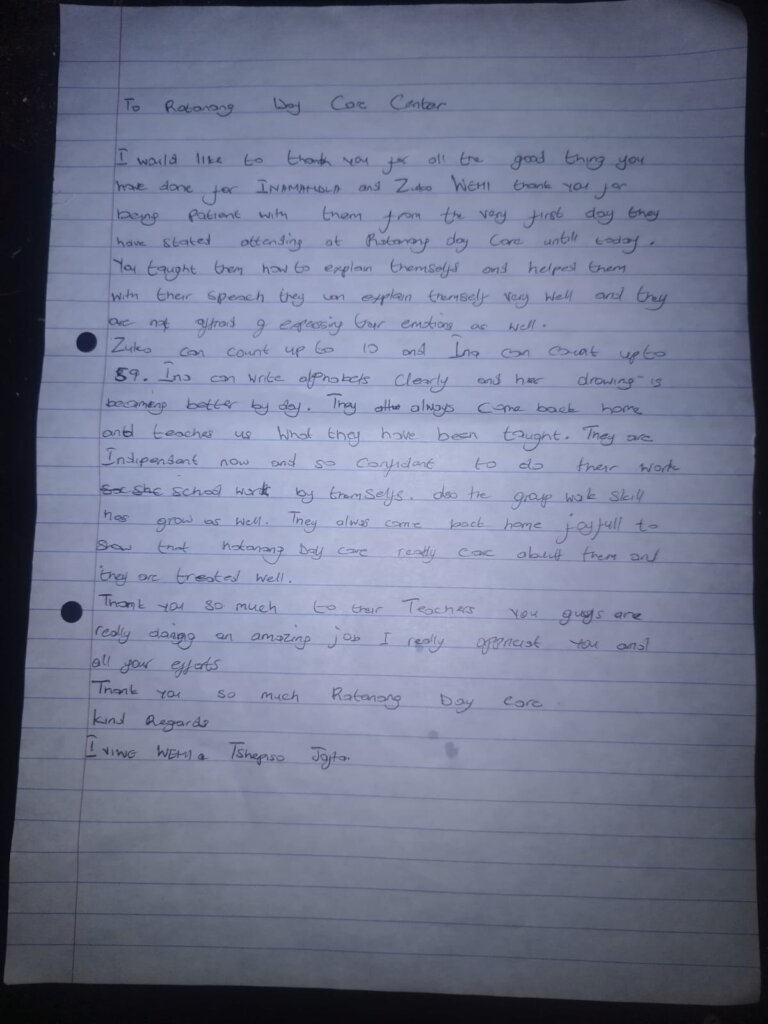 To Ratanang Day Care Center
I would like to thank you for all the good thing you
have done for INAMANDLA and Zuko WEMI thank you for
being patient with them from the very first day they
have stated attending at Ratanang day Care untill today.
You taught them how to explain themselfs and helped them
with their speach they can explain themself very well and they
are not affraid of expessing their emotions as well.
Zuko can count up to 10 and Ina can count up to
59. Ina can write alphabets clearly and her drawing is
becoming better by day. They always come back home
and teaches us what they have been taught. They are
Indipendant now and so Confidant to do their work
school work by themselfs. also the group work skill
has grow as well. They always come back home joyfull to
show that Ratanang Day care really care about them and
they are treated well.
Thank you so much to their Teachers you guys are
really doing an amazing job I really you and
all your efforts
Thank you so much Ratanang Day care
kind Regards
IVIWE WEMI & Tshepiso